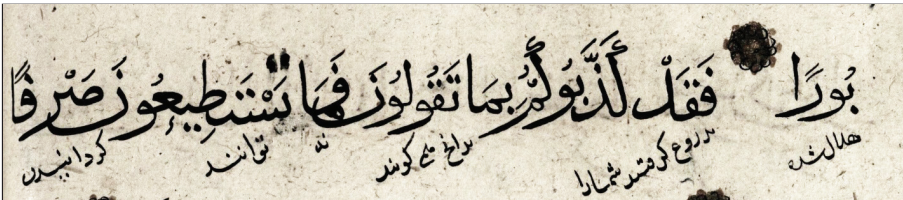 بُورًا فَقَدْ كَذَّبُوكُمْ بِمَا تَقُولُونَ فَمَا تَسْتَطِيعُونَ صَرْفًا
هلاک شده بدروغ کرفتند شمارا بدانچ می کویند نه توانند کردانیدن